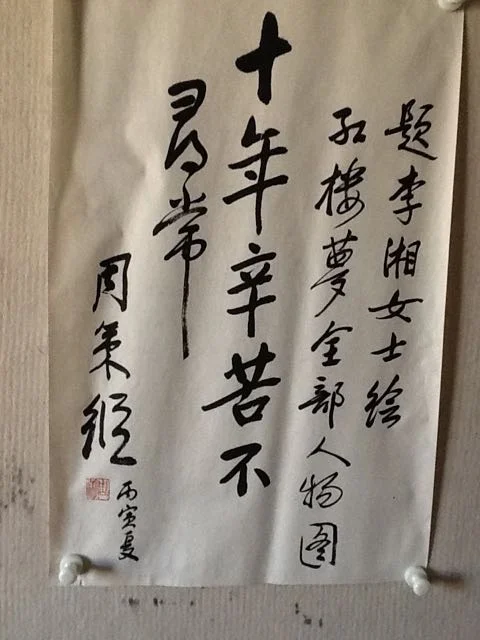 题李湘女士绘
红楼夢全部人物图
十年辛苦不
尋常
周策縱
丙寅夏